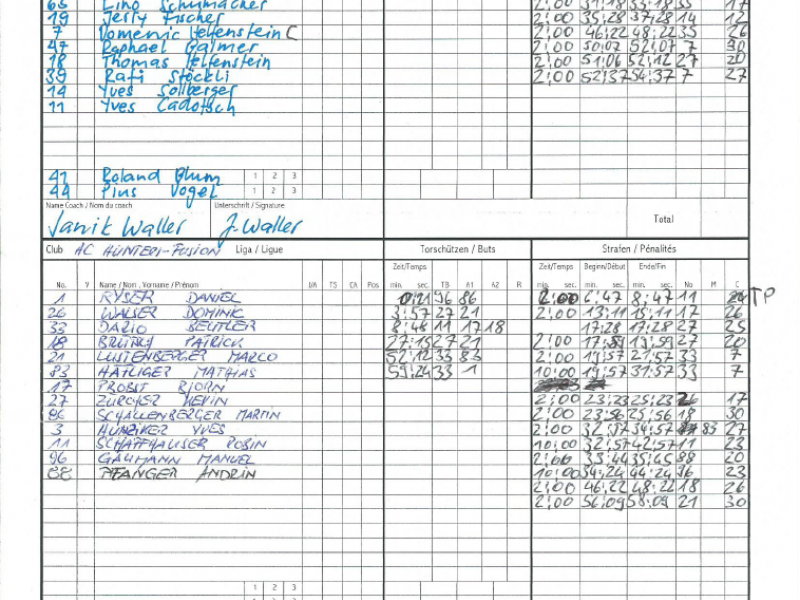 65 Lino Schumacher 2:00 31:18 33:18 33 17
19 Jerry Fischer 2:00 35:28 37:28 14 12
7 Domenic Helfenstein C 2:00 46:22 48:22 35 26
47 Raphael Galmer 2:00 50:07 52:07 7 30
18 Thomas Helfenstein 2:00 51:06 52:12 27 20
39 Rafi Stöckli 2:00 52:37 54:37 7 27
14 Yves Sollberger
11 Yves Cadotsch
41 Roland Blum 1 2 3
44 Pius Vogel 1 2 3
Name Coach / Nom du coach Unterschrift / Signature
Janik Waller J. Waller Total
Club AC HUNTERS-FUSION Liga / Ligue Torschützen / Buts Strafen / Pénalités
Zeit/Temps Zeit/Temps Beginn/Début Ende/Fin
No. V Name / Nom , Vorname / Prénom ÜA TS CA Pos min. sec. TS A1 A2 R min. sec. min. sec. min. sec. No M C
1 RYSER DANIEL 0:21 96 86 2:00 6:47 8:47 11 TP
26 WALSER DOMINIC 3:57 27 21 2:00 13:11 15:11 17 26
33 DARIO BEUTLER 8:48 11 17 18 17:28 17:28 27 25
18 BRÜNSY PATRICK 27:15 27 21 2:00 17:59 19:59 27 20
21 LUSTENBERGER MARCO 52:12 33 83 2:00 19:57 21:57 33 7
83 HÄFLIGER MATHIAS 59:24 33 1 10:00 19:57 31:57 33 7
17 PROBST BJÖRN
27 ZÜRCHER KEVIN 2:00 23:23 25:23 17
86 SCHALLENBERGER MARTIN 2:00 23:56 25:56 18 30
3 HUNZIKER YVES 2:00 32:57 34:57 83 27
11 SCHAFFHAUSER ROBIN 10:00 32:57 42:57 11 23
96 GAUMANN MANUEL 2:00 33:44 35:45 88 20
88 PFANGER ANDRIN 10:00 34:24 44:24 96 23
2:00 46:22 48:22 18 26
2:00 56:09 58:09 21 30
1 2 3